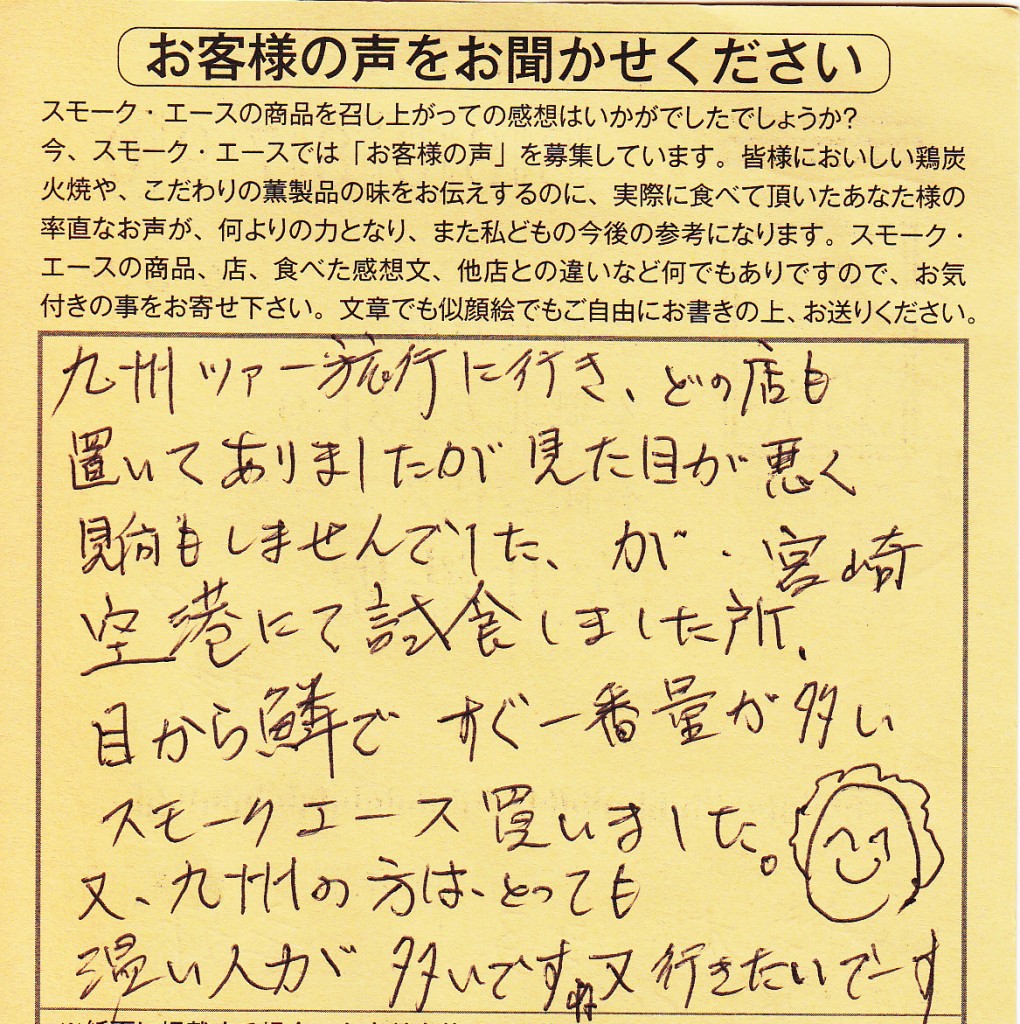 お客様の声をお聞かせください
スモーク・エースの商品を召し上がっての感想はいかがでしたでしょうか?
今、スモーク・エースでは「お客様の声」を募集しています。皆様においしい鶏炭
火焼や、こだわりの薫製品の味をお伝えするのに、実際に食べて頂いたあなた様の
率直なお声が、何よりの力となり、また私どもの今後の参考になります。スモーク・
エースの商品、店、食べた感想文、他店との違いなど何でもありですので、お気
付きの事をお寄せ下さい。文章でも似顔絵でもご自由にお書きの上、お送りください。
九州ツァー旅行に行き、どの店も
置いてありましたが見た目が悪く
見向もしませんでした、が・宮崎
空港にて試食しました所、
目から鱗で すぐ一番量が多い
スモークエース買いました。
又、九州の方は、とっても
温い人力が 多いですね又行きたいでーす